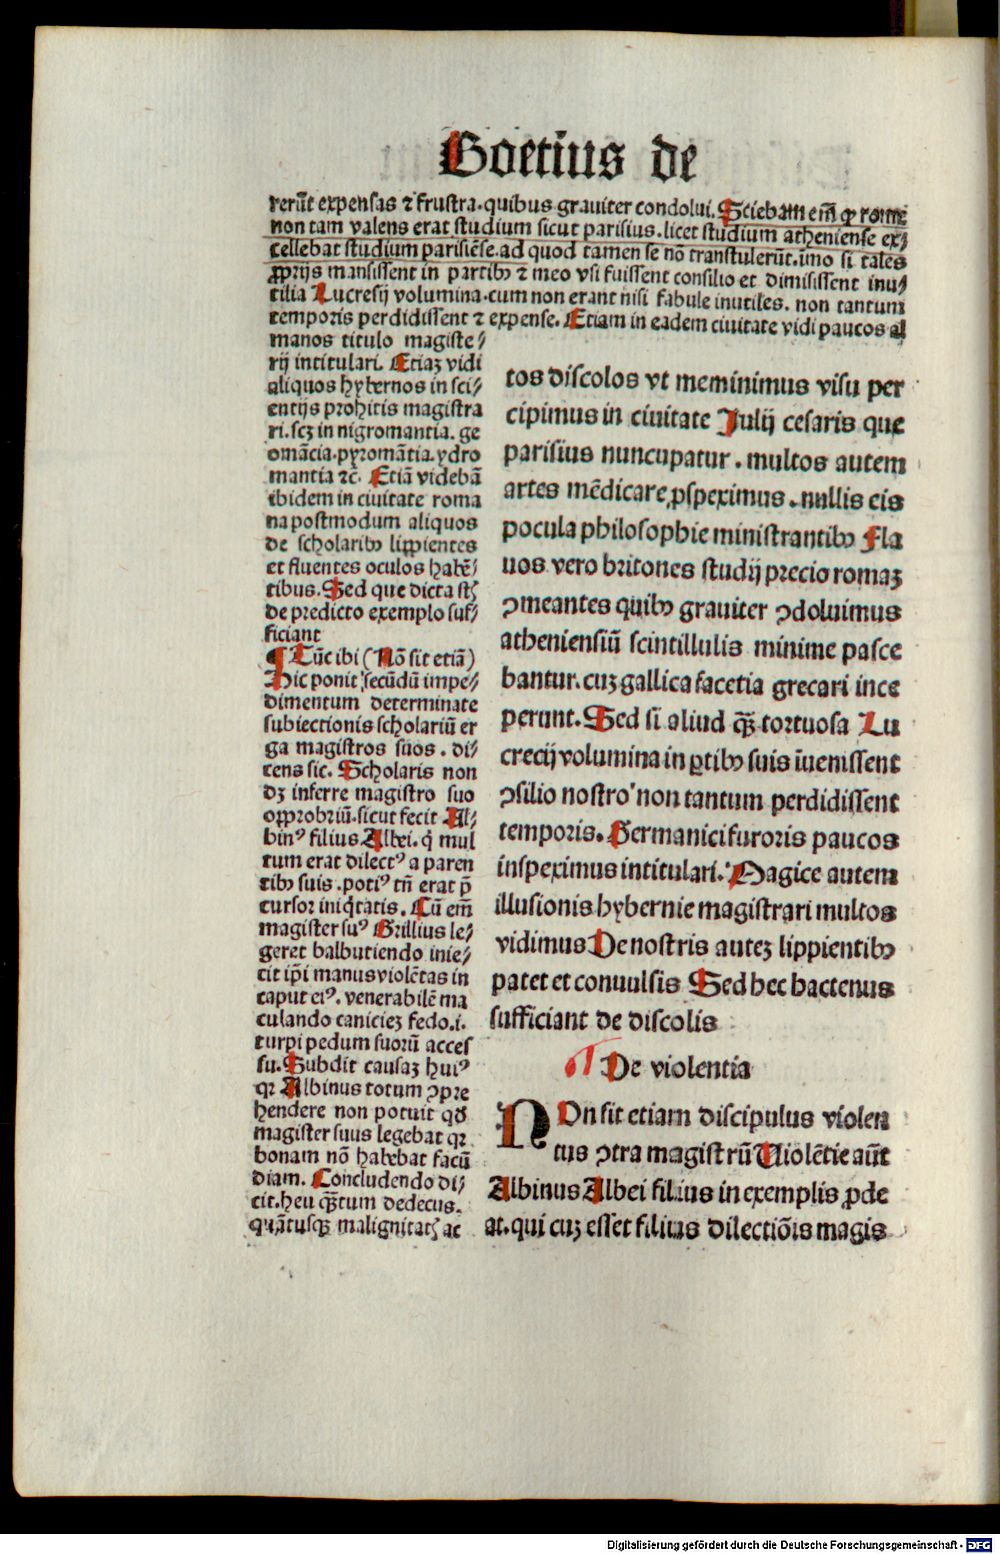 Boetius de
rerūt expensas ⁊ frustra. quibus grauiter condolui. Sciebam em̄ ꝙ rome
non tam valens erat studium sicut parisius. licet studium atheniense ex⸗
cellebat studium parisiēse. ad quod tamen se nō transtulerūt. īmo si tales
ꝓprijs mansissent in partibꝯ ⁊ meo vsi fuissent consilio et dimisissent inu⸗
tilia Lucresij volumina. cum non erant nisi fabule inutiles. non tantum
temporis perdidissent ⁊ expense. Etiam in eadem ciuitate vidi paucos al
manos titulo magiste⸗
rij intitulari. Etiaꝫ vidi
aliquos hybernos in sci⸗
entijs prohitis magistra
ri. scꝫ in nigromantia. ge
omācia. pyromātia. ydro
mantia ⁊c̄. Etiā videbā
ibidem in ciuitate roma
na postmodum aliquos
de scholaribꝯ lippientes
et fluentes oculos habē⸗
tibus. Sed que dicta st̄
de predicto exemplo suf⸗
ficiant
¶ Tūc ibi (Nō sit etiā)
Hic ponit secūdū impe⸗
dimentum determinate
subiectionis scholariū er
ga magistros suos. di⸗
cens sic. Scholaris non
dꝫ inferre magistro suo
opprobriū. sicut fecit Al⸗
binꝰ filius Albei. q̇ mul
tum erat dilectꝰ a paren
tibꝯ suis. potiꝰ tn̄ erat p̄
cursor iniq̇tatis. Cū em̄
magister suꝰ Grillius le⸗
geret balbutiendo inie⸗
cit ip̄i manus violētas in
caput eiꝰ. venerabilē ma
culando canicieꝫ fedo .i.
turpi pedum suorū acces
su. Subdit causaꝫ huiꝰ
qꝛ Albinus totum ꝯpre
hendere non potuit qd̄
magister suus legebat qꝛ
bonam nō habebat facū
diam. Concludendo di⸗
cit. heu quātum dedecus.
quātusqꝫ malignitatꝭ ac
tos discolos vt meminimus visu per
cipimus in ciuitate Julij cesaris que
parisius nuncupatur. multos autem
artes mēdicare ꝓspeximus. nullis eis
pocula philosophie ministrantibꝯ Fla
uos vero britones studij precio romaꝫ
ꝯmeantes quibꝯ grauiter ꝯdoluimus
atheniensiū scintillulis minime pasce
bantur. cuꝫ gallica facetia grecari ince
perunt. Sed si aliud q̄ꝫ tortuosa Lu
crecij volumina in ꝑtibꝯ suis īuenissent
ꝯsilio nostro non tantum perdidissent
temporis. Germanici furoris paucos
inspeximus intitulari. Magice autem
illusionis hybernie magistrari multos
vidimus De nostris auteꝫ lippientibꝯ
patet et conuulsis Sed hec hactenus
sufficiant de discolis
¶ De violentia
NOn sit etiam discipulus violen
tus ꝯtra magistrū Uiolētie aūt
Albinus Albei filius in exemplis ꝓde
at. qui cuꝫ esset filius dilectiōis magis
Digitalisierung gefördert durch die Deutsche Forschungsgemeinschaft - DFG